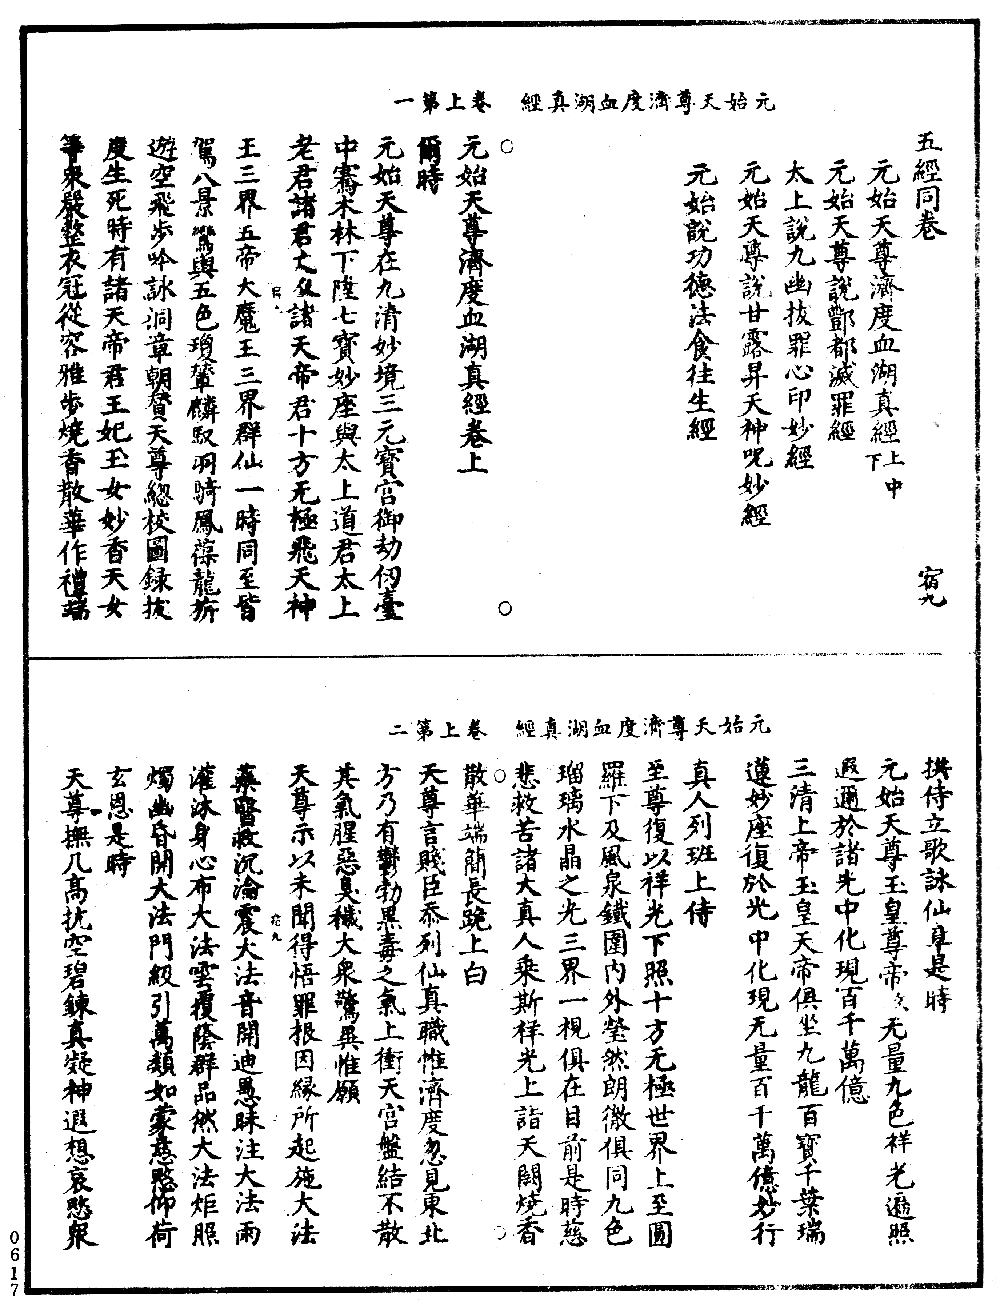 元始天尊濟度血湖真經　卷上第一
五經同卷　宿九
元始天尊濟度血湖真經上中下
元始天尊說酆都滅罪經
太上說九幽拔罪心印妙經
元始天尊說甘露昇天神呪妙經
元始說功德法食往生經
元始天尊濟度血湖真經卷上
爾時
元始天尊在九清妙境三元寶宮御劫仞臺
中騫木林下陞七寶妙座與太上道君太上
老君諸君丈人諸天帝君十方无極飛天神
王三界五帝大魔王三界群仙一時同至皆
駕八景鸞輿五色瓊輦麟馭羽騎鳳葆龍旂
遊空飛步吟詠洞章朝賛天尊緫校圖録拔
度生死時有諸天帝君王妃玉女妙香天女
等衆嚴整衣冠從容雅步燒香散華作禮端
元始天尊濟度血湖真經　卷上第二
拱侍立歌詠仙章是時
元始天尊玉皇尊帝放无量九色祥光遍照
遐邇於諸光中化現百千萬億
三清上帝玉皇天帝俱坐九龍百寶千葉瑞
蓮妙座復於光中化現无量百千萬億妙行
真人列班上侍
至尊復以祥光下照十方无極世界上至圓
羅下及風泉鐵圍內外瑩然朗徹俱同九色
瑠璃水晶之光三界一視俱在目前是時慈
悲救苦諸大真人乘斯祥光上詣天闕燒香
散華端簡長跪上白
天尊言賤臣忝列仙真職惟濟度忽見東北
方乃有鬱勃黑毒之氣上衝天宮盤結不散
其氣腥惡臭穢大衆驚異惟願
天尊示以未聞得悟罪根因緣所起施大法
藥醫救沉淪震大法音開迪愚昧注大法雨
灌沐身心布大法雲覆蔭群品然大法炬照
燭幽昏開大法門級引萬類如蒙慈愍仰荷
玄恩是時
天尊撫几高抗空碧鍊真凝神遐想哀愍衆
宿九
0617